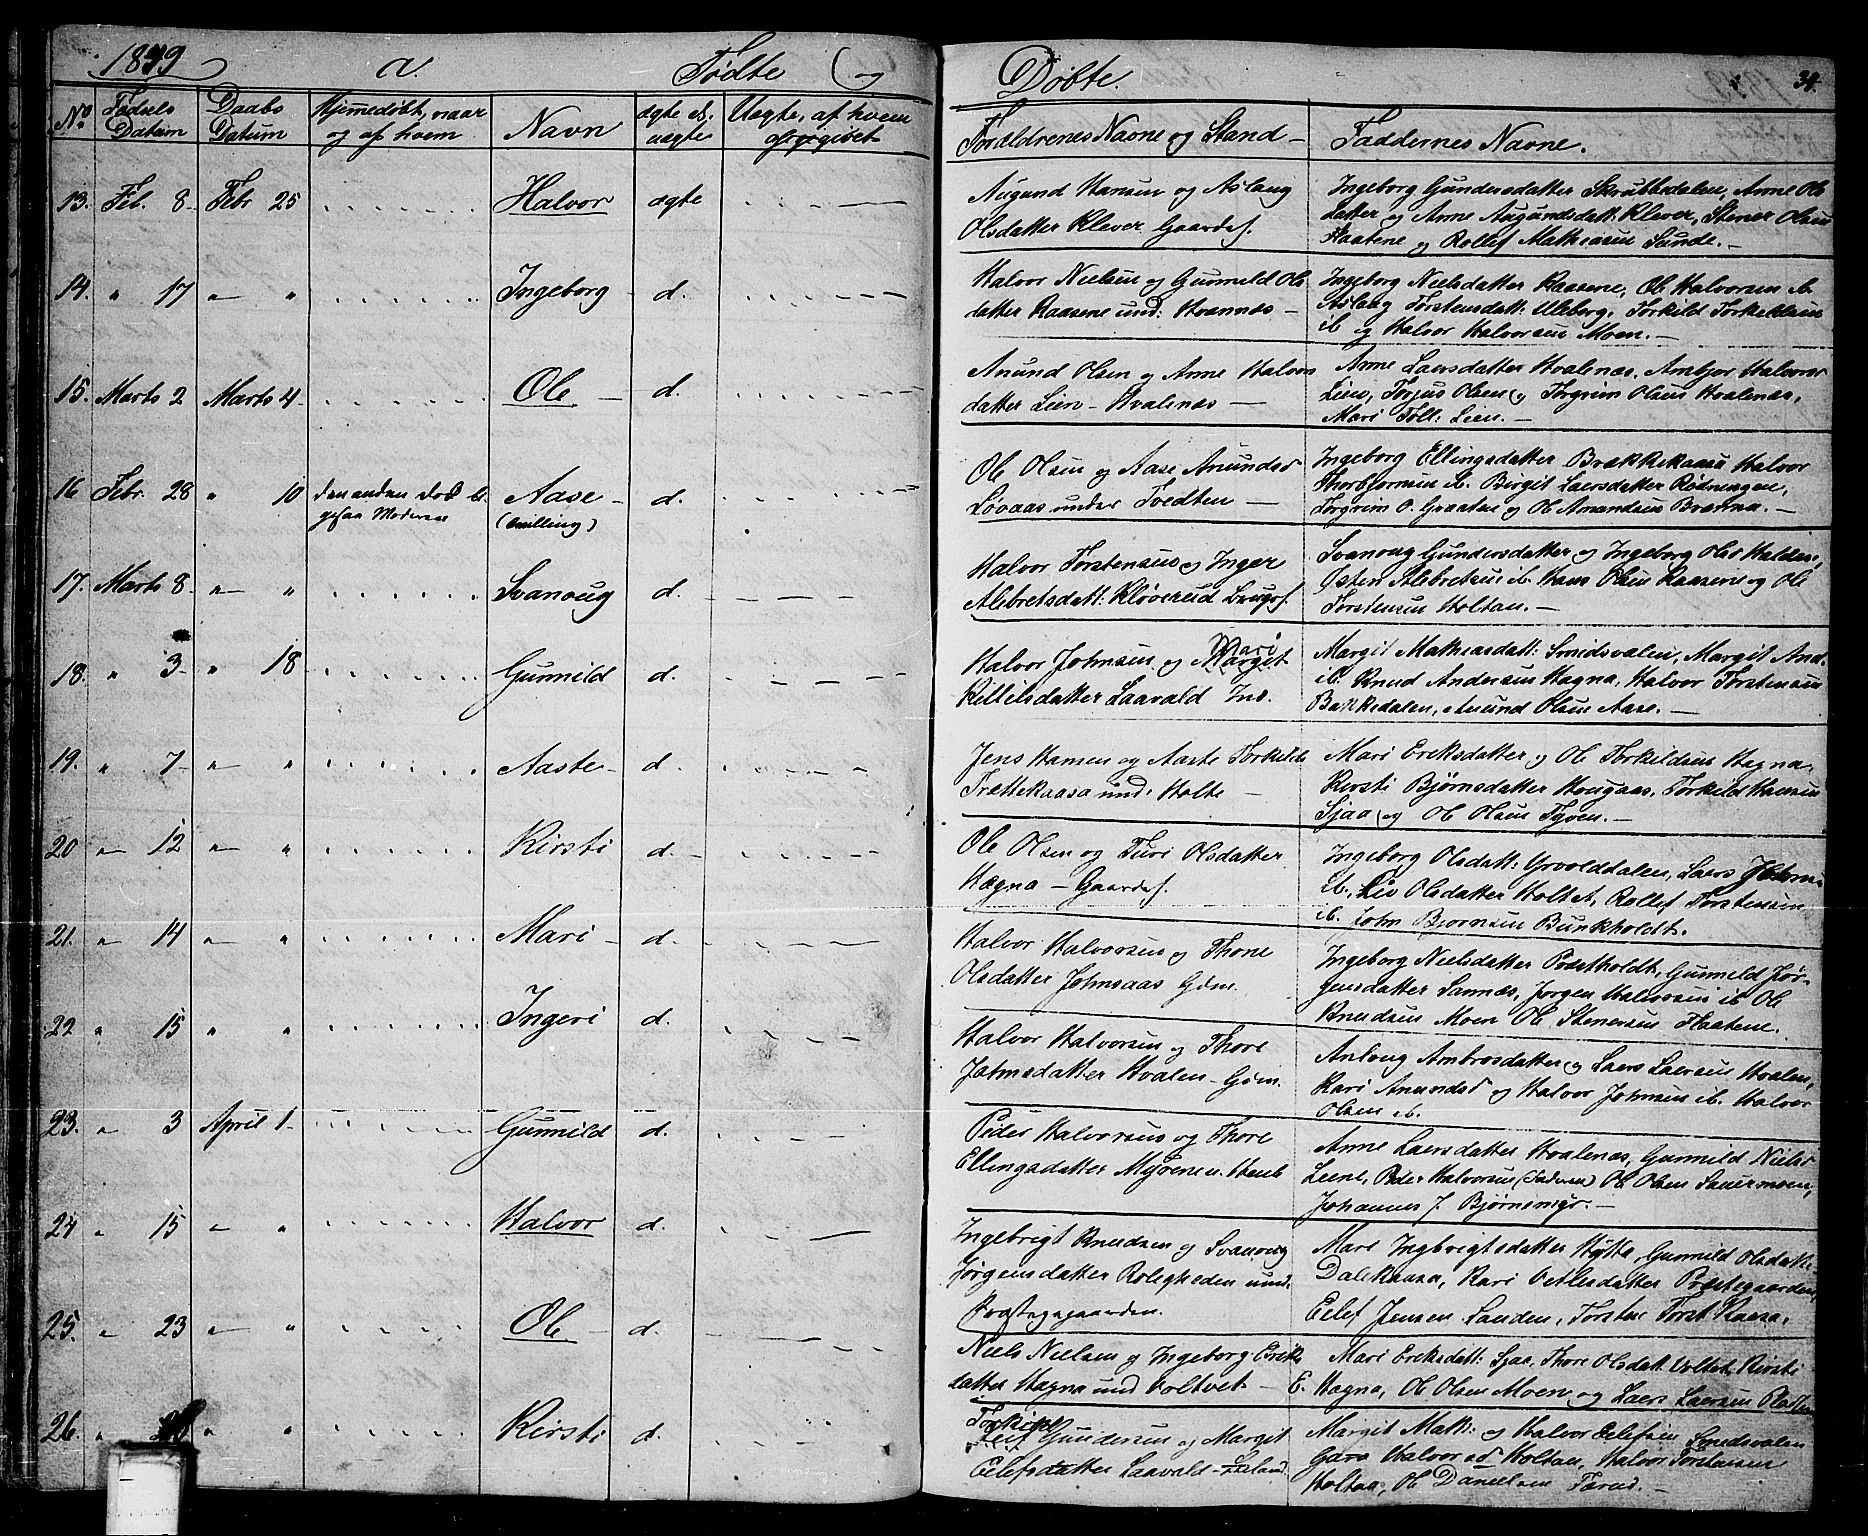 1849 a. Fødte og Døbte. 34.
No. Fødsels Datum Daabs Datum Hjemmedøbt, naar og af hvem Navn ægte el. uægte Uægte, af hvem opgivet Forældrenes Navne og Stand Faddernes Navne.
13. Feb. 8 Febr 25 Halvor ægte
Augund Hansen og Aslaug
Olsdatter Klever Gaardsf.
Ingeborg Gundersdatter Skrubbedalen, Anne Ols
datter og Anne Augundsdatt: Klever, Stener Olsen
Haatene og Rollef Mathiasen Sunde.
14. " 17 " " Ingeborg d.
Halvor Nielsen og Gunnild Ols
datter Raasene und: Hvannes
Ingeborg Nielsdatter Raasene, Ole Halvorsen ib.
Aslaug Torstensdatt: Uleberg, Torkild Torkildsen
ib og Halvor Halvorsen Moen.
15. Marts 2 Marts 4 Ole d.
Anund Olsen og Anne Halvors
datter Lien - Hvalenæs
Anne Laersdatter Hvalenæs, Anbjor Halvorsd
Liene, Torjus Olsen og Torgrim Olsen Hvalenæs,
Mari Toll: Lien.
16 Febr. 28 " 10 den anden død b.
gesaa Moderen Aase
(tvilling) d.
Ole Olsen og Aase Anundsd
Løvaas under Tvedten
Ingeborg Ellingsdatter Brækkekaasa Halvor
Thorbjornsen ib. Birgit Laersdatter Rødningene,
Torgrim O. Graaten og Ole Amundsen Brænna.
17. Marts 8 " " Svanoug d.
Halvor Torstensen og Inger
Alebretsdatt: Kløverud Brugsf.
Svanoug Gundersdatter og Ingeborg Olsd Halden,
Østen Alebretsen ib. Hans Olsen Raasene og Ole
Torstensen Holtan.
18. " 3 " 18 Gunnild d.
Mari
Halvor Johnsen og Margit
Kittilsdatter Laavald Ins.
Margit Mathiasdatt: Smidsvalen, Margit And.
ib. Knud Andersen Hagna, Halvor Torstensen
Bakkedalen, Anund Olsen Aase.
19. " 7 " " Aaste d.
Jens Hansen og Aaste Torkilds
Trættekaasa und: Holte
Mari Eriksdatter og Ole Torkildsen Hagna,
Kirsti Bjørnsdatter Hougaas, Torkild Hansen
Sjaa og Ole Olsen Tyven.
20 " 12 " " Kirsti d.
Ole Olsen og Turi Olsdatter
Hægna - Gaardsf.
Ingeborg Olsdatt: Grvolddalen, Laers
ib., Liv Olsdatter Holtet, Rollef Torstensen
ib. John Bjørnsen Bunkholdt.
21. " 14 " " Mari d.
Halvor Halvorsen og Thone
Olsdatter Johnsaas Gdm.
Ingeborg Nielsdatter Præstholdt, Gunnild Jør-
gensdatter Sannæs, Jørgen Halvorsen ib Ole
Knudsen Moen Ole Stenersen Haatene.
22 " 15 " " Ingeri d.
Halvor Halvorsen og Thore
Johnsdatter Hvalen - Gdm.
Anlaug Ambrosdatter og Laers Laersen Hvalen,
Kari Anundsd og Halvor Johnsen ib. Halvor
Olsen ib.
23. " 3 April 1 Gunnild d.
Peder Halvorsen og Thore
Ellingsdatter Myrene u. Haub
Anne Laersdatter Hvalenæs, Gunnild Nielsd
Leine, Peder Halvorsen (Faderen) Ole Olsen Sauermoen,
Johannes J. Bjørnemyr.
24 " 15 " " Halvor d.
Ingebrigt Knudsen og Svanoug
Jørgensdatter Roligheden und.
Præstegaarden.
Mari Ingbrigtsdatter Hytta, Gunnild Olsdatt
Dalekaasa, Kari Vetlesdatter Præstegaarden,
Eilef Jensen Landen, Torsten Torst Kaasa.
25. " 23 " " Ole d.
Niels Nielsen og Ingeborg Eriks
datter Hagna und Holtvet
Mari Eriksdatt: Sjaa, Thore Olsdat Holtet, Kirsti
E. Hagna, Ole Olsen Moen og Laers Laersen
26. " " " Kirsti d.
Torkild
Leif Gundersen og Margit
Eilefsdatter Laavald
Margit Math: og Halvor Eilefsen Smidsvalen
Halvorsd Holtan, Halvor Torstensen
Holtan, Ole Danielsen Farud.